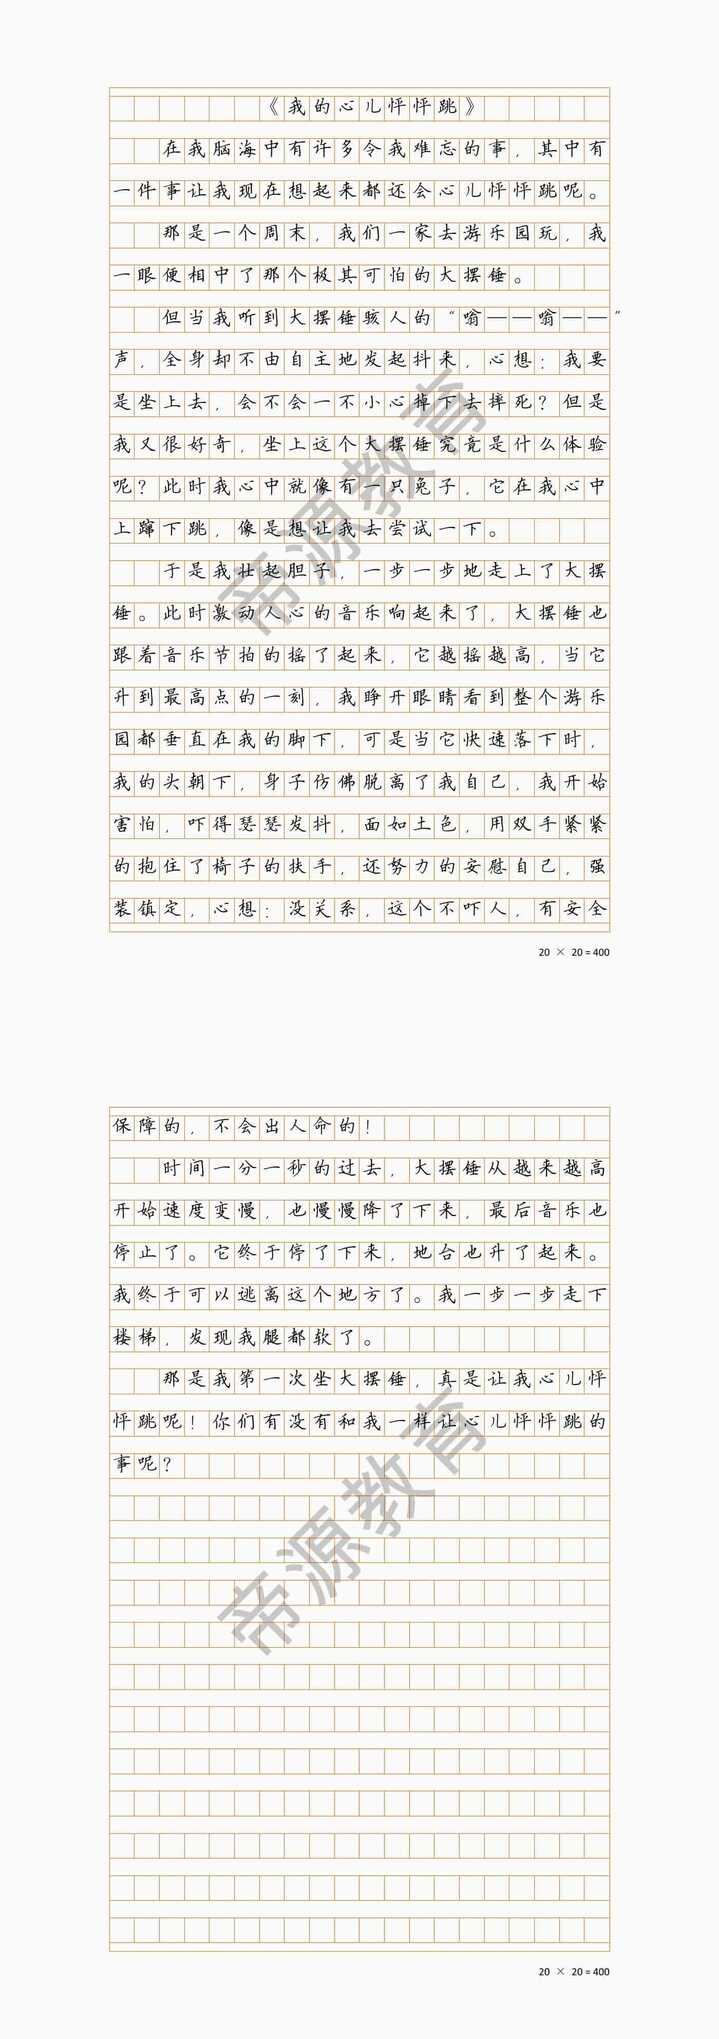 《我的心儿怦怦跳》
在我脑海中有许多令我难忘的事，其中有
一件事让我现在想起来都还会心儿怦怦跳呢。
那是一个周末，我们一家去游乐园玩，我
一眼便相中了那个极其可怕的大摆锤。
但当我听到大摆锤骇人的“嗡——嗡——”
声，全身却不由自主地发起抖来，心想：我要
是坐上去，会不会一不小心掉下去摔死？但是
我又很好奇，坐上这个大摆锤究竟是什么体验
呢？此时我心中就像有一只兔子，它在我心中
上蹿下跳，像是想让我去尝试一下。
于是我壮起胆子，一步一步地走上了大摆
锤。此时激动人心的音乐响起来了，大摆锤也
跟着音乐节拍的摇了起来，它越摇越高，当它
升到最高点的一刻，我睁开眼睛看到整个游乐
园都垂直在我的脚下，可是当它快速落下时，
我的头朝下，身子仿佛脱离了我自己，我开始
害怕，吓得瑟瑟发抖，面如土色，用双手紧紧
的抱住了椅子的扶手，还努力的安慰自己，强
装镇定，心想：没关系，这个不吓人，有安全
20 × 20＝400
保障的，不会出人命的！
时间一分一秒的过去，大摆锤从越来越高
开始速度变慢，也慢慢降了下来，最后音乐也
停止了。它终于停了下来，地台也升了起来。
我终于可以逃离这个地方了。我一步一步走下
楼梯，发现我腿都软了。
那是我第一次坐大摆锤，真是让我心儿怦
怦跳呢！你们有没有和我一样让心儿怦怦跳的
事呢？
20 × 20＝400
帝源教育
帝源教育